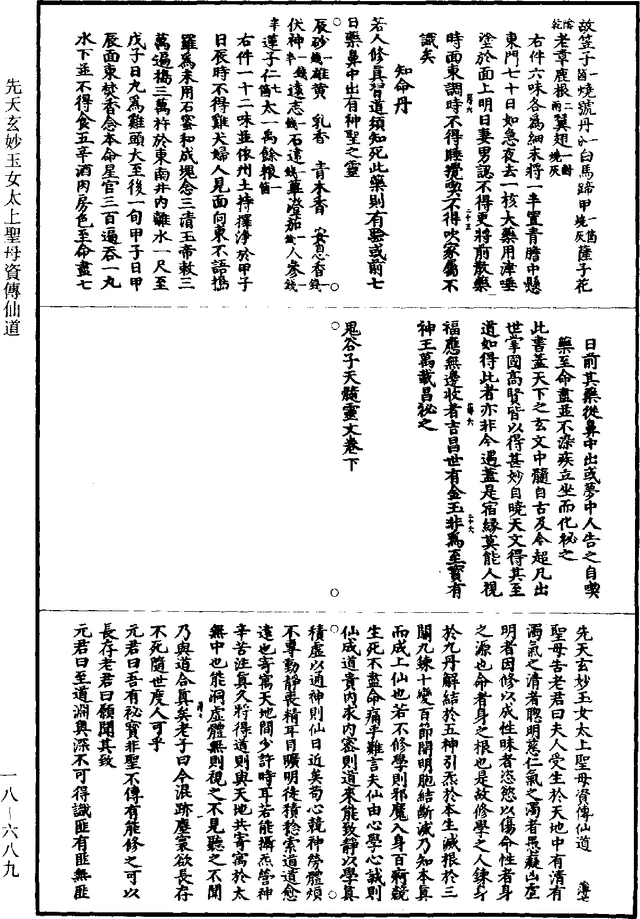 故笠子一箇燒號丹一分白馬蹄甲一箇燒灰薩子花
陰乾老章鹿根二兩翼翅一對燒灰
右件六味各為細末將一半置青膽中懸
東門七十日如急夜去一核大藥用津唾
塗於面上明日妻男認不得更將前散藥
時面東調時不得睡攪喫不得吹家屬不
識矣
知命丹
若人修真習道須知死此藥則有驗或前七
日藥鼻中出有神聖之靈
辰砂一錢雄黃 乳香 青木香 安息香一錢
伏神半錢遠志一錢石
辛蓮子仁七箇太一禹餘粮一箇
右件一十二味並依州土持擇淨於甲子
日辰時不得雞犬婦人見面向東不語搗
羅為末用石蜜和成塊念三清玉帝敕三
萬遍搗三萬杵於東南非內離水一尺至
戊子日丸為雞頭大至後一旬甲子日甲
辰面東焚香念本命星官三百遍吞一丸
水下並不得食五辛酒肉房色至命盡七
日前其藥從鼻中出或夢中人告之自喫
藥至命盡並不染疾立坐而化祕之
此書蓋天下之玄文中髓自古及今超凡出
世掌國高賢皆以得甚妙自曉天文得其至
道如得此者亦非今遇蓋是宿緣莫能人視
福應無邊收者吉昌世有金玉非為至寶有
神王萬載昌祕之
鬼谷子天髓靈文卷下
先天玄妙玉女太上聖母資傳仙道
聖母告老君曰夫人受生於天地中有清有
濁氣之清者聰明慈仁氣之濁者愚癡凶虐
明者因修以成性昧者恣慾以傷命性者身
之源也命者身之根也是故修學之人鍊身
於九丹解結於五神引炁於本生滅根於三
關九鍊十變百節開明胞結斷滅乃知本真
而成上仙也若不修學則邪魔入身百痾競
生死不盡命痛乎難言夫仙由心學心誠則
仙成道貴內求內密則道來能致靜以學真
積虛以通神則仙日近矣苟心競神勞體煩
不專動靜喪精耳目曠明徒積稔索道道愈
遠也寄寓天地間少許時耳若能攝炁營神
辛苦注真久將得道則與天地共寄寓於太
無中也能洞虛體無則視之不見聽之不聞
乃與道合真矣老子曰今混跡塵寰欲長存
不死隨世度人可乎
元君曰吾有祕寶非聖不傳有能修之可以
長存老君曰願聞其致
元君曰至道淵奧深不可得識匪有匪無匪
先天玄妙玉女太上聖母資傳仙道
一八－六八九